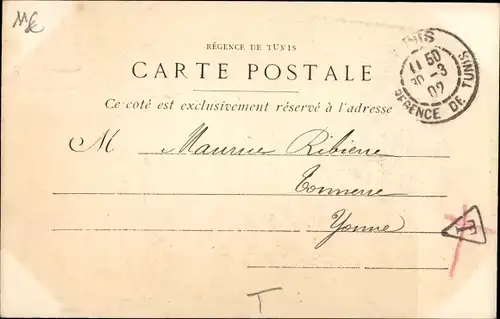 RÉGENCE DE TUNIS
CARTE POSTALE
Ce côté est exclusivement réservé à l'adresse
M Maurice Ribière
Tonnerre
Yonne
TUNIS
11 50
30 -3
02
REGENCE DE TUNIS
T
T